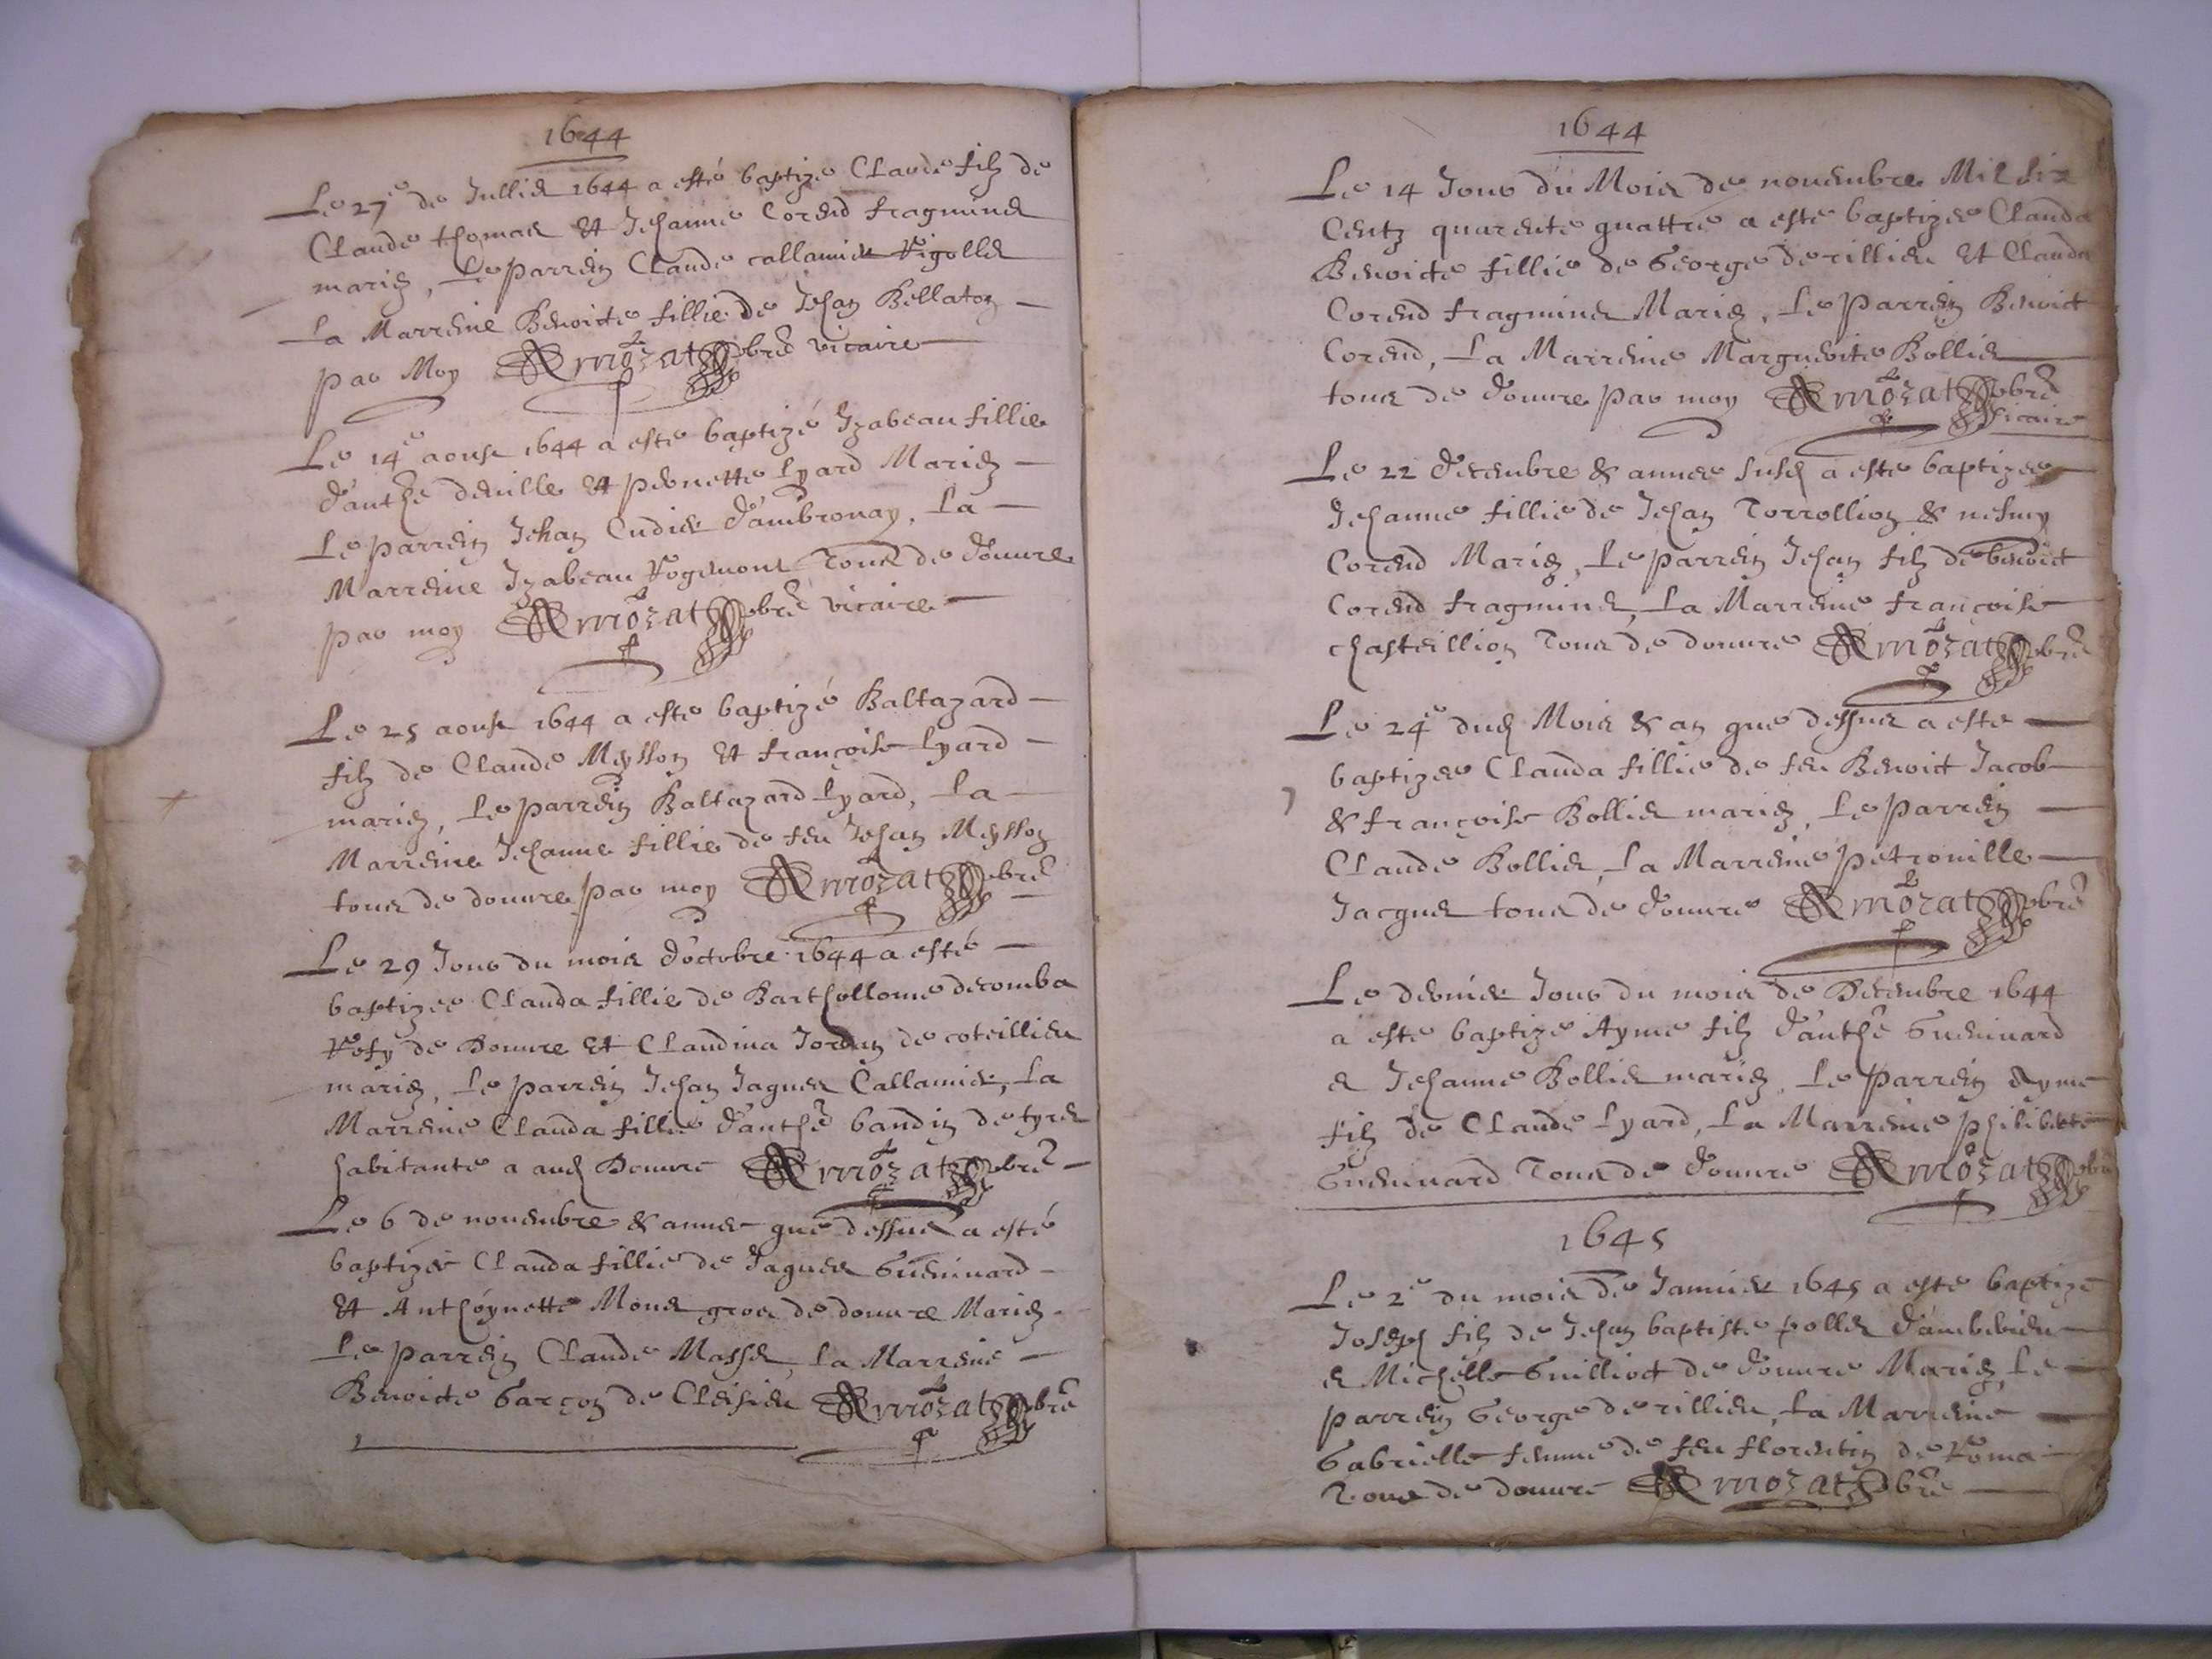 1644
Le 27e de Jullier 1644 a esté baptize Claude filz de
Claude thomas et Jehanne Corend fragmined
mariez, Le parrein Claude callamier Rigolles
La Marreine Benoicte fillie de Jehan Bellaton
par Moy Armozat pbre vicaire
Le 14e aoust 1644 a este baptizé Izabeau fillie
d'anthe deville et pernette Lyard Mariez
Le parrein Jehan Cudier d'ambronay, La
Marreine Izabeau Rogemont Tous de douvre
par moy Armozat pbre vicaire
Le 25 aoust 1644 a este baptizé Baltazard
filz de Claude Meysson et françoise Lyard
mariez, Le parrein Baltazard Lyard, La
Marreine Jehanne fillie de feu Jehan Meysson
tous de douvre par moy Armozat pbre
Le 29 Jour du mois d'octobre 1644 a esté
baptizee Clauda fillie de Barthollome decomba
Rosy de Douvre et Claudina Jordan de coteillieu
mariez, Le parrein Jehan Jaques Callamier, La
Marreine Clauda fillie d'anthe baudin de tyres
habitante a aud Douvre Armozat pbre
Le 6 de novembre & annee que dessus a esté
baptizee Clauda fillie de Jaques Gueninard
et Anthoynette Mons gros de douvre Mariez
Le parrein Claude Masse, La Marreine
Benoicte Garçon de Cleisieu Armozat pbre
1644
Le 14 Jour du Mois de novembre Mil six
Centz quarente quattre a este baptizee Clauda
Benoicte fillie de George derillieu et Clauda
Corend fragmines Mariez, Le Parrein Benoict
Corend, La Marreine Marguerite Bollier
tous de douvre par moy Armozat pbre
vicaire
Le 22 Decembre & annee susd a este baptizee
Jehanne fillie de Jehan Torrollion &
Corend Mariez, Le parrein Jehan filz de benoict
Corend fragmines, La Marreine françoise
chasteillion Tous de douvre Armozat pbre
Le 24e dud Mois & an que dessus a este
baptizee Clauda fillie de feu Benoict Jacob
& françoise Bollier mariez, Le parrein
Claude Bollier, La Marreine petronille
Jacques tous de douvre Armozat pbre
Le dernier Jour du mois de Decembre 1644
a este baptizé Ayme filz d'anthe Gueninard
e Jehanne Bollier mariez, Le parrein Ayme
filz de Claude Lyard, La Marreine philiberte
Gueninard Tous de douvre Armozat pbre
1645
Le 2e du mois de Janvier 1645 a este baptizé
Joseph filz de Jehan baptiste pollet
e Michelle Guilliot de douvre Mariez, Le
parrein George derillieu, La Marreine
Gabrielle femme de feu florentin de Roma
Tous de douvre Armozat pbre